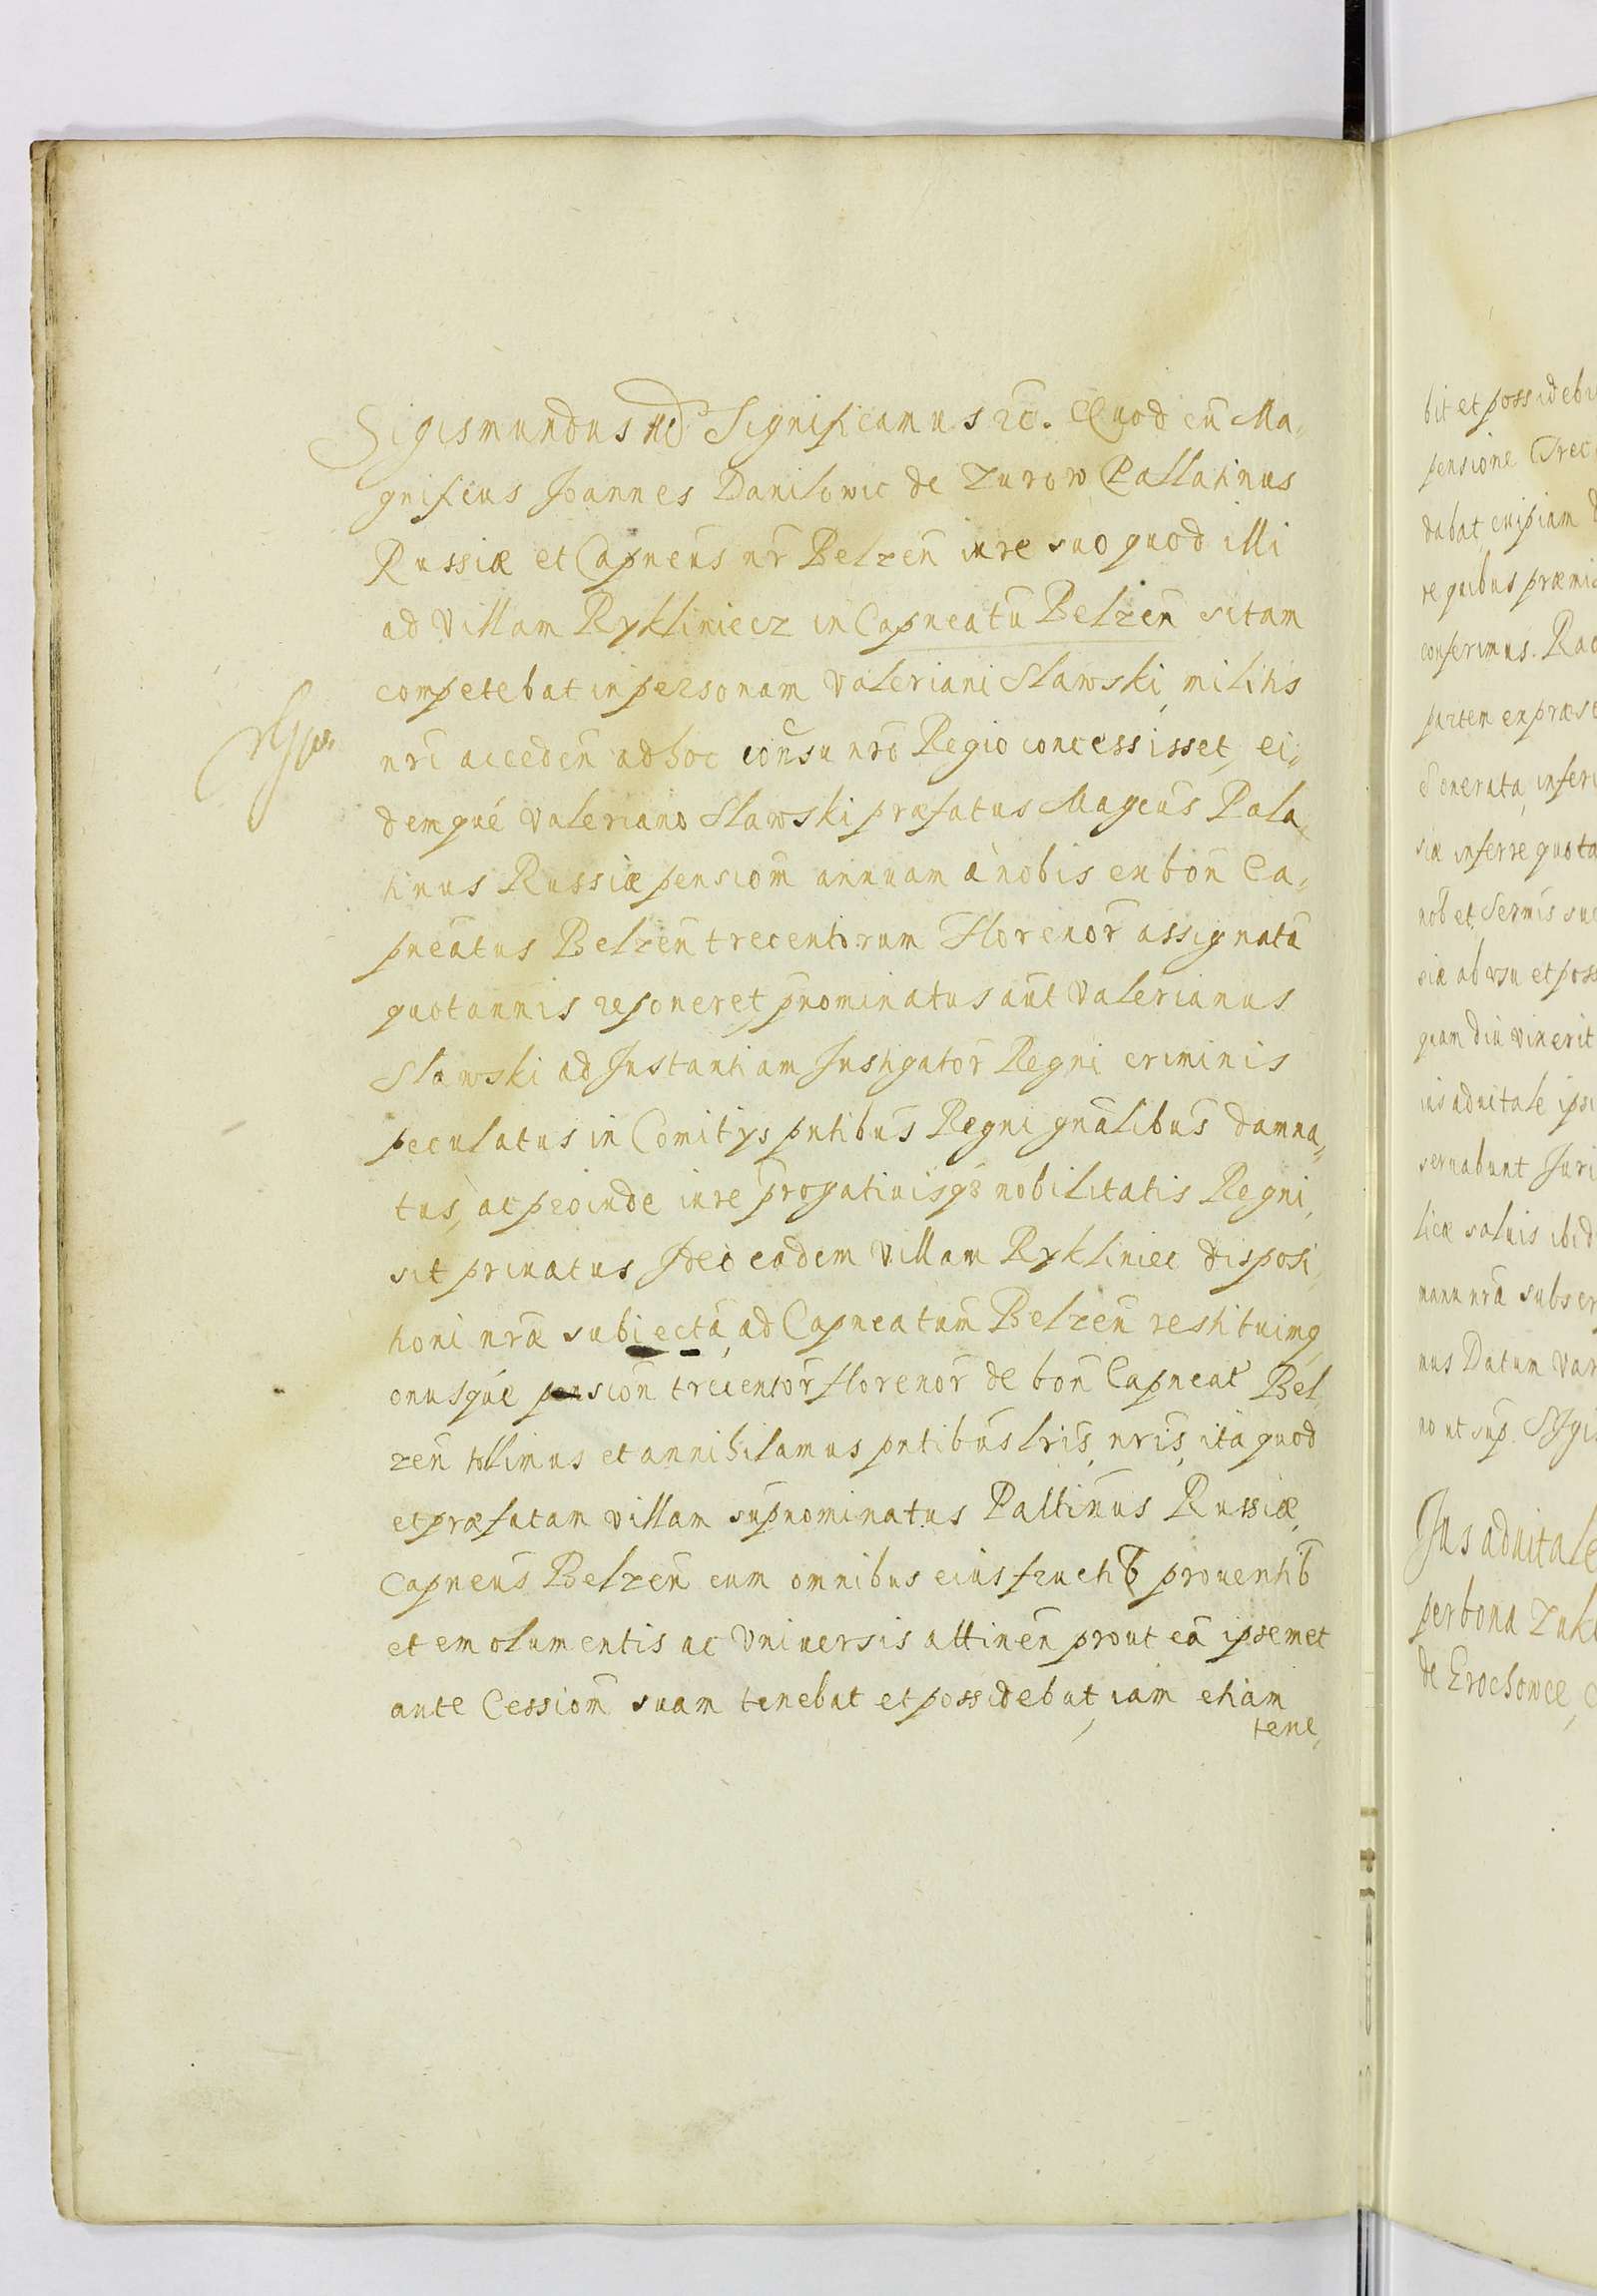 Sigismundus ꝛc̃. Significamus ꝛc̃. Quod cũ Ma,
gnificus Joannes Danilowic de Zurow Pallatinus
Russiæ et Capneũs nr̃ Belzeñ iure suo quod illi
ad Villam Rykliniecz in Capneatũ Belzeñ sitam
competebat in personam Valeriani Slawski, militis
nrĩ accedeñ ad hoc coñsu nrõ Regio concessisset, ei,
demqué Valeriano Slawski præfatus Magcũs Pala,
tinus Russiæ pensiom̃ annuam à nobis ex boñ Ca,
pneãtus Belzeñ trecentorum Florenor̃ assignatã
quotannis reponeret, pñominatus aũt Valerianus
Slawski ad Instantiam Instigator̃ Regni criminis
peculatus in Comitys pñtibũs Regni gnãlibũs damna,
tus, ac proinde iure prõgatiuisqꝫ nobilitatis Regni,
sit priuatus Ideo eadem Villam Rykliniec disposi,
tioni nrã subiectã, ad Capneatũm Belzeñ restituimꝗ
onusqúe pensioñ trecentor̃ florenor̃ de boñ Capneat̃ Bel,
zeñ tollimus et annihilamus pñtibũs lrĩs, nrĩs, ita quod
et præfatam villam sup̃nominatus Palltinũs Russiæ,
Capneũs Belzeñ cum omnibus eius fructib̃ prouentib̃
et emolumentis ac Vniuersis attineñ prout eã ipsemet
ante Cessiom̃ suam tenebat et possidebat, iam etiam
tene,
bit et possidebi
pensione Trec
dabat, eripiam
re quibus præmi
conferimus. Rac
partem ex præst
exonerata, infer
siæ inferre quota
nob et, Sermĩs suc
siæ ab vsu et poss
quam diu vixerit
ius aduitale ipsi
seruabunt Juri
licæ saluis ibid
manu nrã subscr
nus Datum Var
no ut sup. Sigi
Jus aduitale
per bona Zuk
de Erochowce,